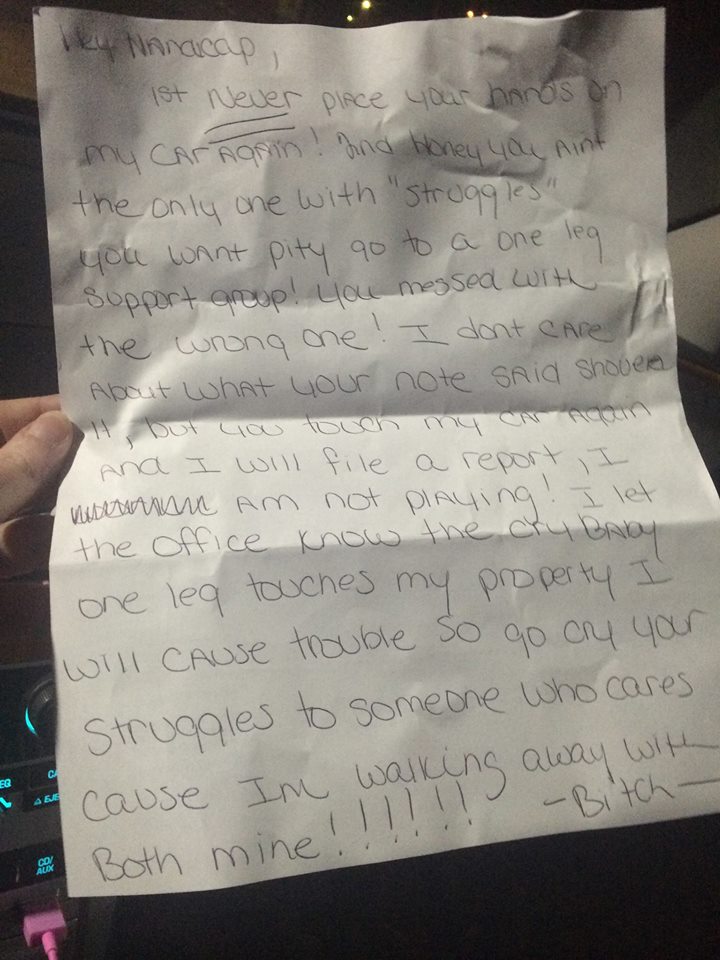 Hey Handicap,
1st Never place your hands on
my car again! And Honey you aint
the only one with "struggles"
you want pity go to a one leg
support group! You messed with
the wrong one! I dont care
about what your note said shove
it, but you touch my car again
and I will file a report, I
am not playing! I let
the office know the cry baby
one leg touches my property I
will cause trouble so go cry your
struggles to someone who cares
cause Im walking away with
Both mine!!!!!!
-Bitch-
EQ
CD/
AUX